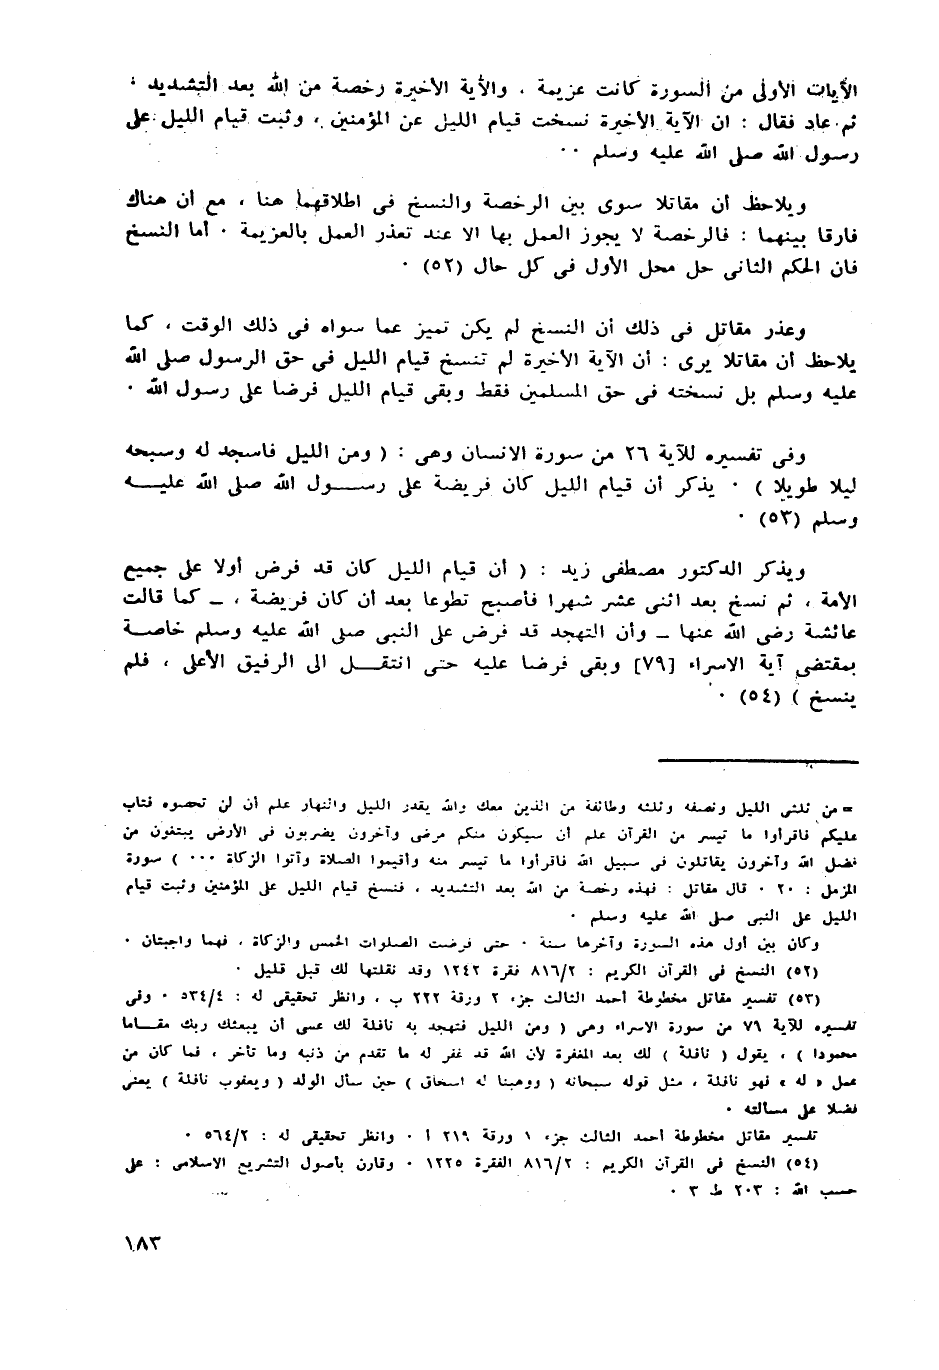 الآيات الأولى من السورة كانت عزيمة ، والآية الأخيرة رخصة من الله بعد التشديد ·
ثم عاد فقال : ان الآية الأخيرة نسخت قيام الليل عن المؤمنين ، وثبت قيام الليل على
رسول الله صلى الله عليه وسلم ··
ويلاحظ أن مقاتلا سوى بين الرخصة والنسخ فى اطلاقهما هنا ، مع أن هناك
فارقا بينهما : فالرخصة لا يجوز العمل بها الا عند تعذر العمل بالعزيمة · أما النسخ
فان الحكم الثانى حل محل الأول فى كل حال (٥٢) ·
وعذر مقاتل فى ذلك أن النسخ لم يكن تميز عما سواه فى ذلك الوقت ، كما
يلاحظ أن مقاتلا يرى : أن الآية الأخيرة لم تنسخ قيام الليل فى حق الرسول صلى الله
عليه وسلم بل نسخته فى حق المسلمين فقط وبقى قيام الليل فرضا على رسول الله ·
وفى تفسيره للآية ٢٦ من سورة الانسان وهى : ( ومن الليل فاسجد له وسبحه
ليلا طويلا ) · يذكر أن قيام الليل كان فريضة على رســـول الله صلى الله عليـــه
وسلم (٥٣) ·
ويذكر الدكتور مصطفى زيد : ( أن قيام الليل كان قد فرض أولا على جميع
الأمة ، ثم نسخ بعد اثنى عشر شهرا فأصبح تطوعا بعد أن كان فريضة ، ــ كما قالت
عائشة رضى الله عنها ــ وأن التهجد قد فرض على النبى صلى الله عليه وسلم خاصـة
بمقتضى آية الاسراء [٧٩] وبقى فرضا عليه حتى انتقــل الى الرفيق الأعلى ، فلم
ينسخ ) (٥٤) ·
= من ثلثى الليل ونصفه وثلثه وطائفة من الذين معك والله يقدر الليل والنهار علم أن لن تحصوه فتاب
عليكم فاقرأوا ما تيسر من القرآن علم أن سيكون منكم مرضى وآخرون يضربون فى الأرض يبتغون من
فضل الله وآخرون يقاتلون فى سبيل الله فاقرأوا ما تيسر منه وأقيموا الصلاة وآتوا الزكاة ··· ) سورة
المزمل : ٢٠ · قال مقاتل : فهذه رخصة من الله بعد التشديد ، فنسخ قيام الليل على المؤمنين وثبت قيام
الليل على النبى صلى الله عليه وسلم ·
وكان بين أول هذه السورة وآخرها سنة · حتى فرضت الصلوات الخمس والزكاة ، فهما واجبتان ·
(٥٢) النسخ فى القرآن الكريم : ٨١٦/٢ فقرة ١٢٤٢ وقد نقلتها لك قبل قليل ·
(٥٣) تفسير مقاتل مخطوطة أحمد الثالث جزء ٢ ورقة ٢٢٢ ب ، وانظر تحقيقى له : ٥٣٤/٤ · وفى
تفسيره للآية ٧٩ من سورة الاسراء وهى ( ومن الليل فتهجد به نافلة لك عسى أن يبعثك ربك مقـاما
محمودا ) ، يقول ( نافلة ) لك بعد المغفرة لأن الله قد غفر له ما تقدم من ذنبه وما تأخر ، فما كان من
عمل « له » فهو نافلة ، مثل قوله سبحانه ( ووهبنا له اسحاق ) حين سأل الولد ( ويعقوب نافلة ) يعنى
فضلا على مسألته ·
تفسير مقاتل مخطوطة أحمد الثالث جزء ١ ورقة ٢١٩ أ · وانظر تحقيقى له : ٥٦٤/٢ ·
(٥٤) النسخ فى القرآن الكريم : ٨١٦/٢ الفقرة ١٢٢٥ · وقارن بأصول التشريع الاسلامى : على
حسب الله : ٢٠٣ ط ٣ ·
١٨٣